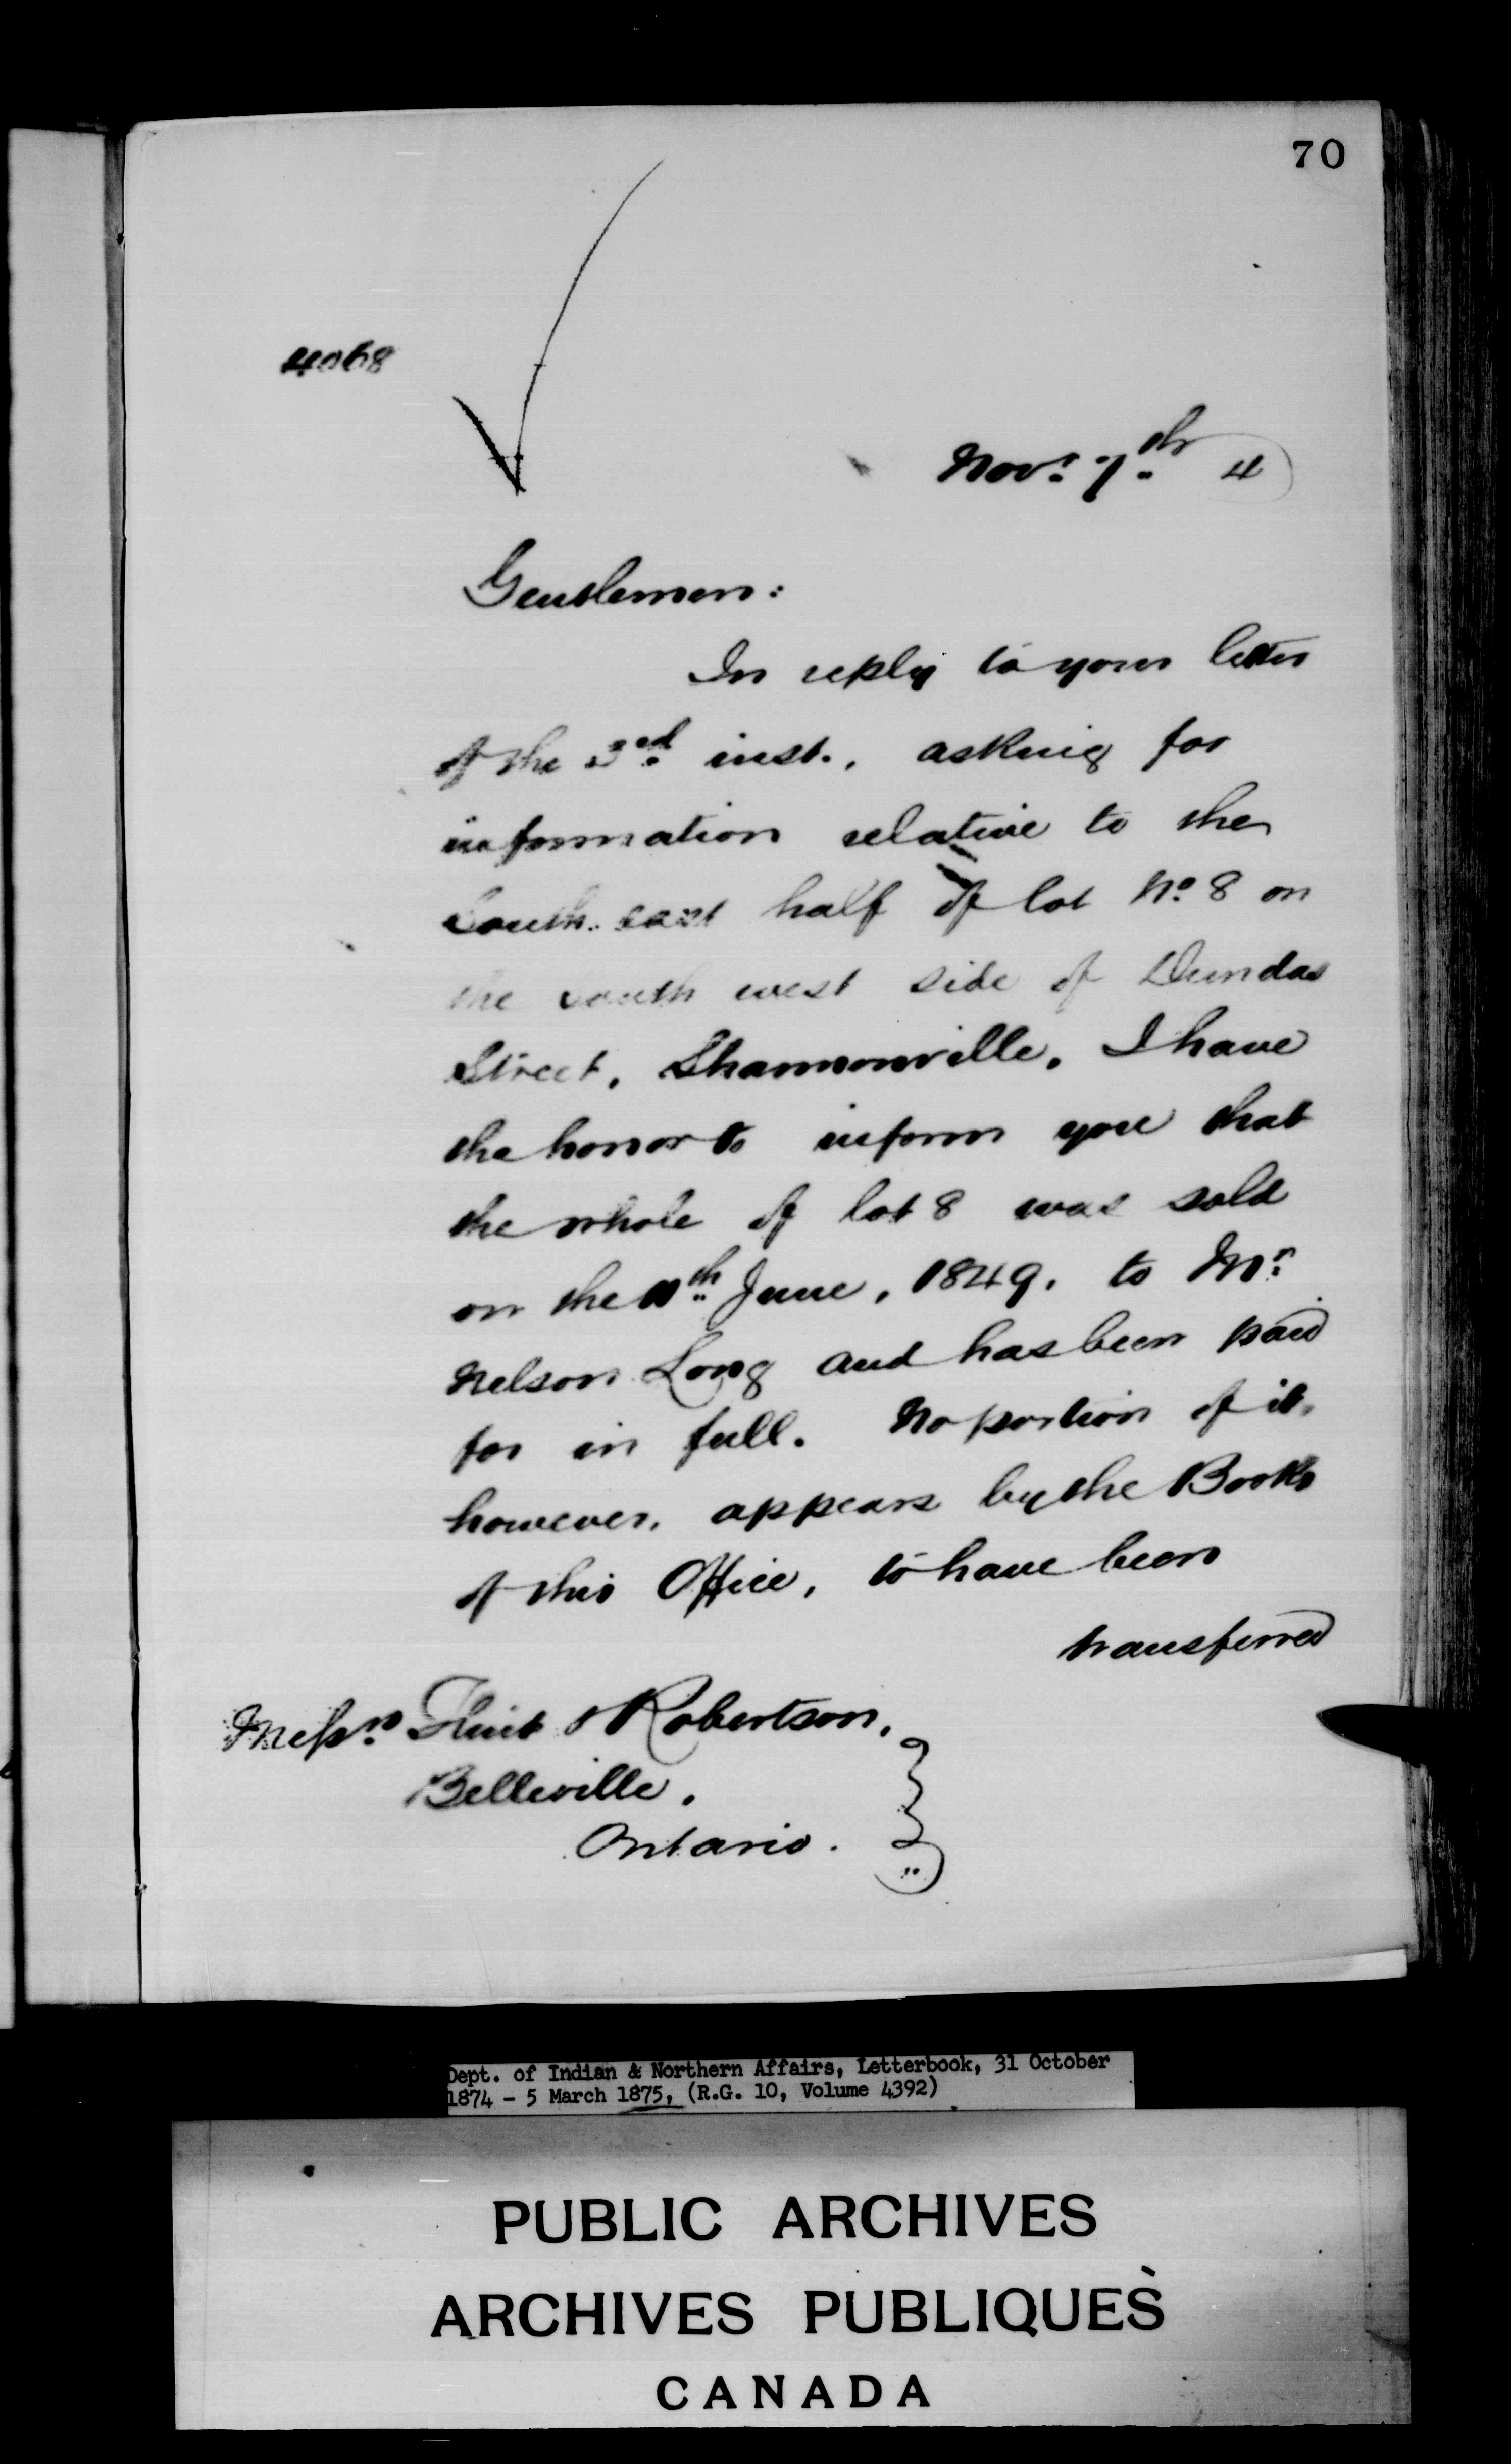 70
4068
Novr. 7th 4
Gentlemen:
In reply to your letter
of the 3rd inst., asking for
information relative to the
South-east half of lot No. 8 on
the South west side of Dundas
Street, Shannonville, I have
the honor to inform you that
the whole of lot 8 was sold
on the 11th June, 1849, to Mr.
Nelson Long and has been paid
for in full. No portion of it,
however, appears by the Books
of this Office, to have been
transferred
Messrs. Flint & Robertson,
Belleville,
Ontario.
Dept. of Indian & Northern Affairs, Letterbook, 31 October
1874 - 5 March 1875, (R.G. 10, Volume 4392)
PUBLIC ARCHIVES
ARCHIVES PUBLIQUES
CANADA